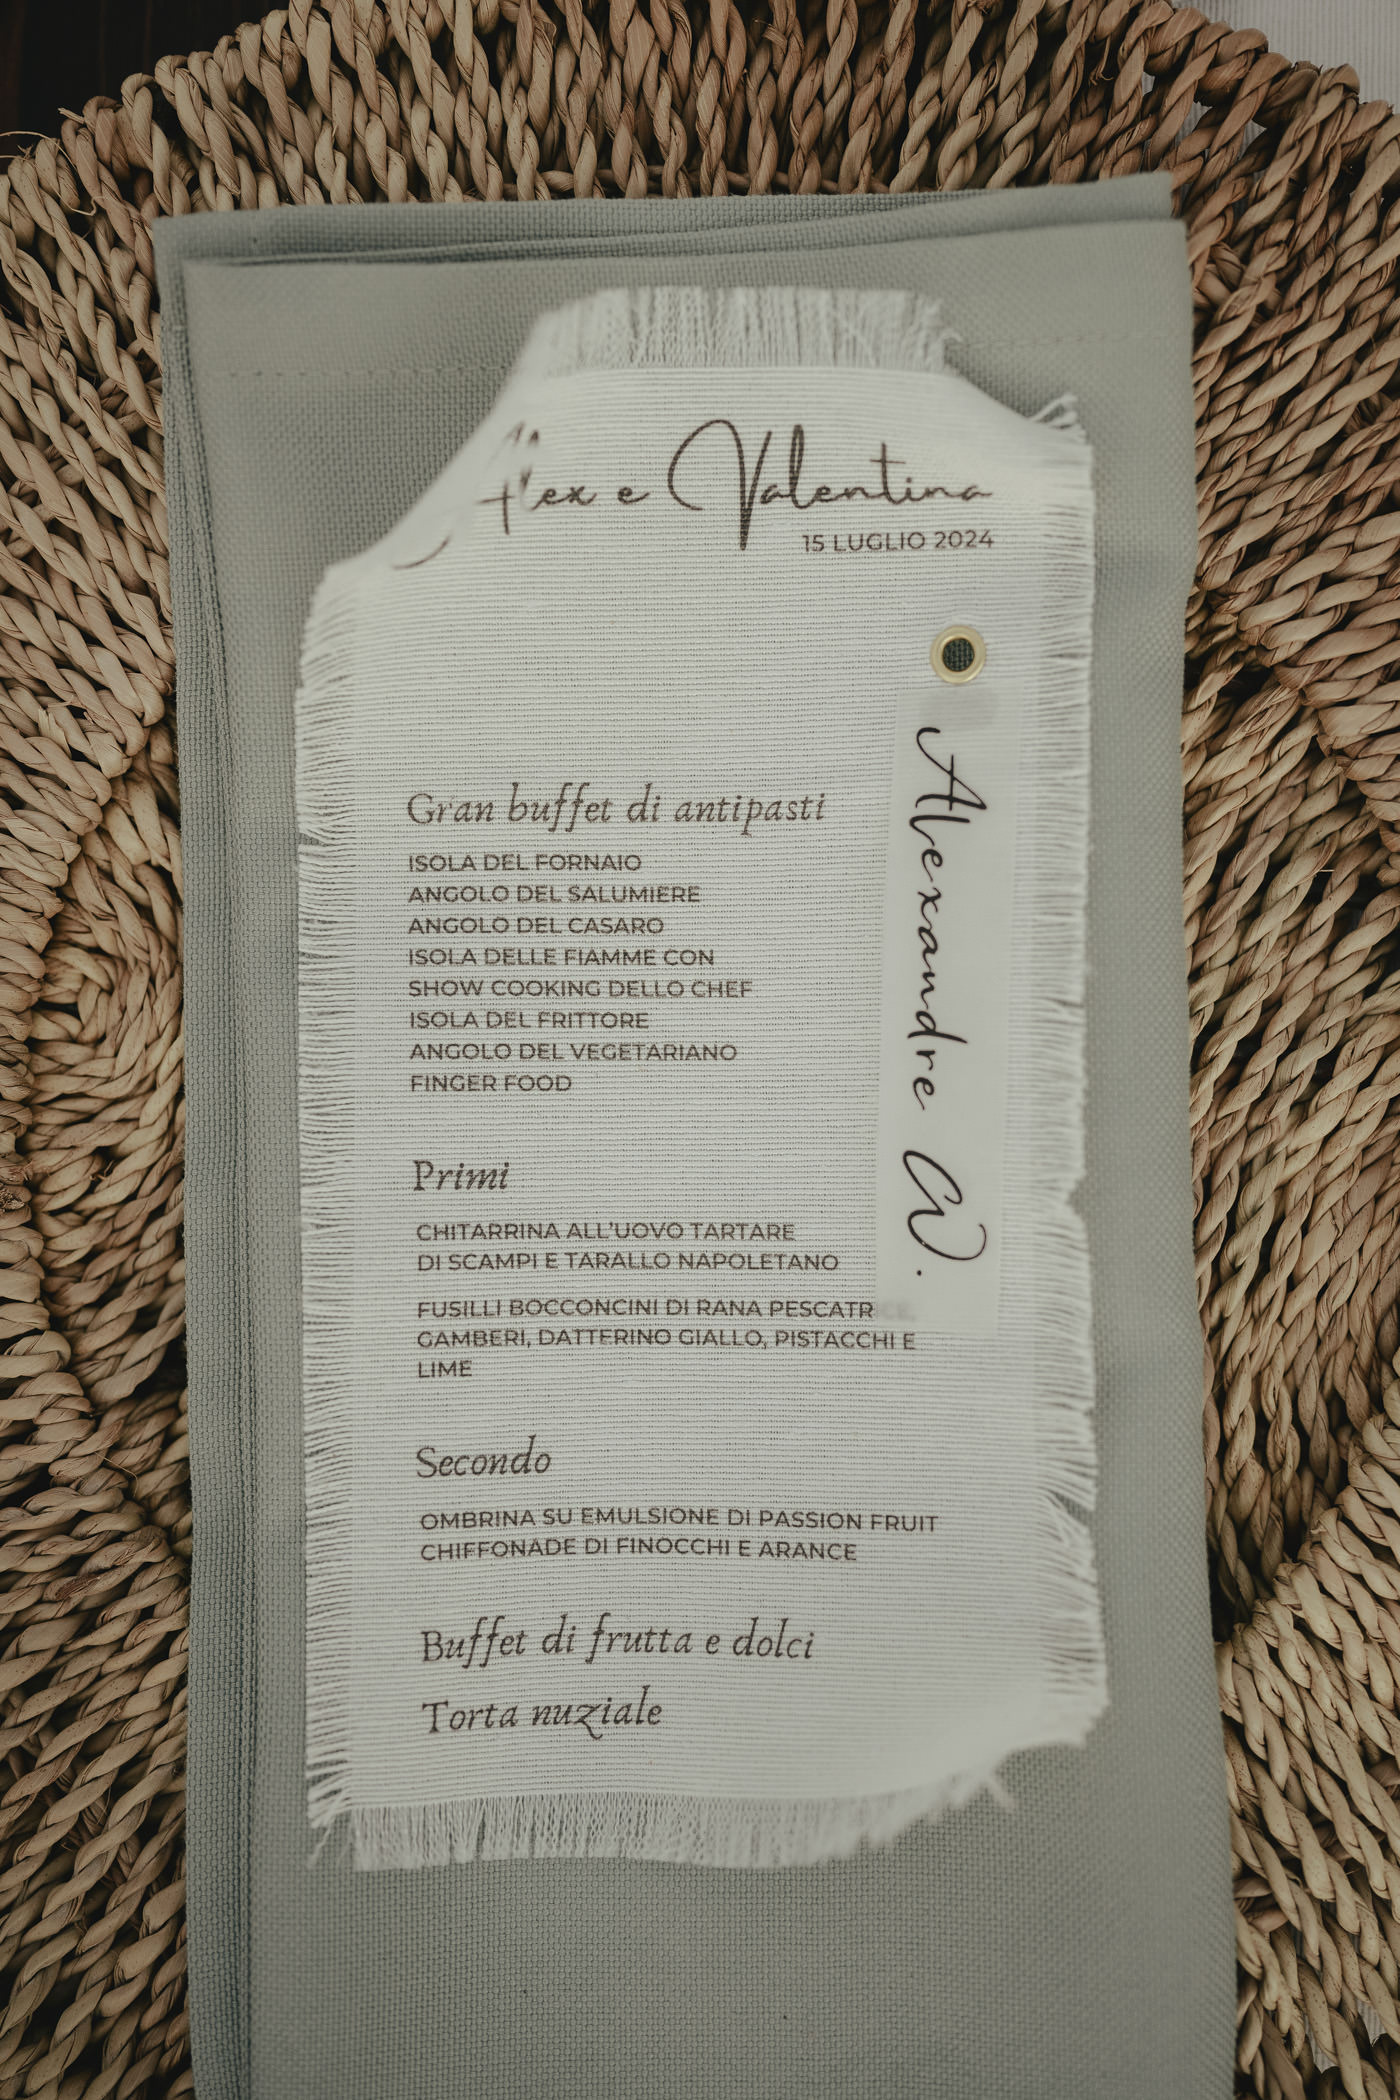 Alex e Valentina
15 LUGLIO 2024
Alexandre W.
Gran buffet di antipasti
ISOLA DEL FORNAIO
ANGOLO DEL SALUMIERE
ANGOLO DEL CASARO
ISOLA DELLE FIAMME CON
SHOW COOKING DELLO CHEF
ISOLA DEL FRITTORE
ANGOLO DEL VEGETARIANO
FINGER FOOD
Primi
CHITARRINA ALL'UOVO TARTARE
DI SCAMPI E TARALLO NAPOLETANO
FUSILLI BOCCONCINI DI RANA PESCATRICE,
GAMBERI, DATTERINO GIALLO, PISTACCHI E
LIME
Secondo
OMBRINA SU EMULSIONE DI PASSION FRUIT
CHIFFONADE DI FINOCCHI E ARANCE
Buffet di frutta e dolci
Torta nuziale